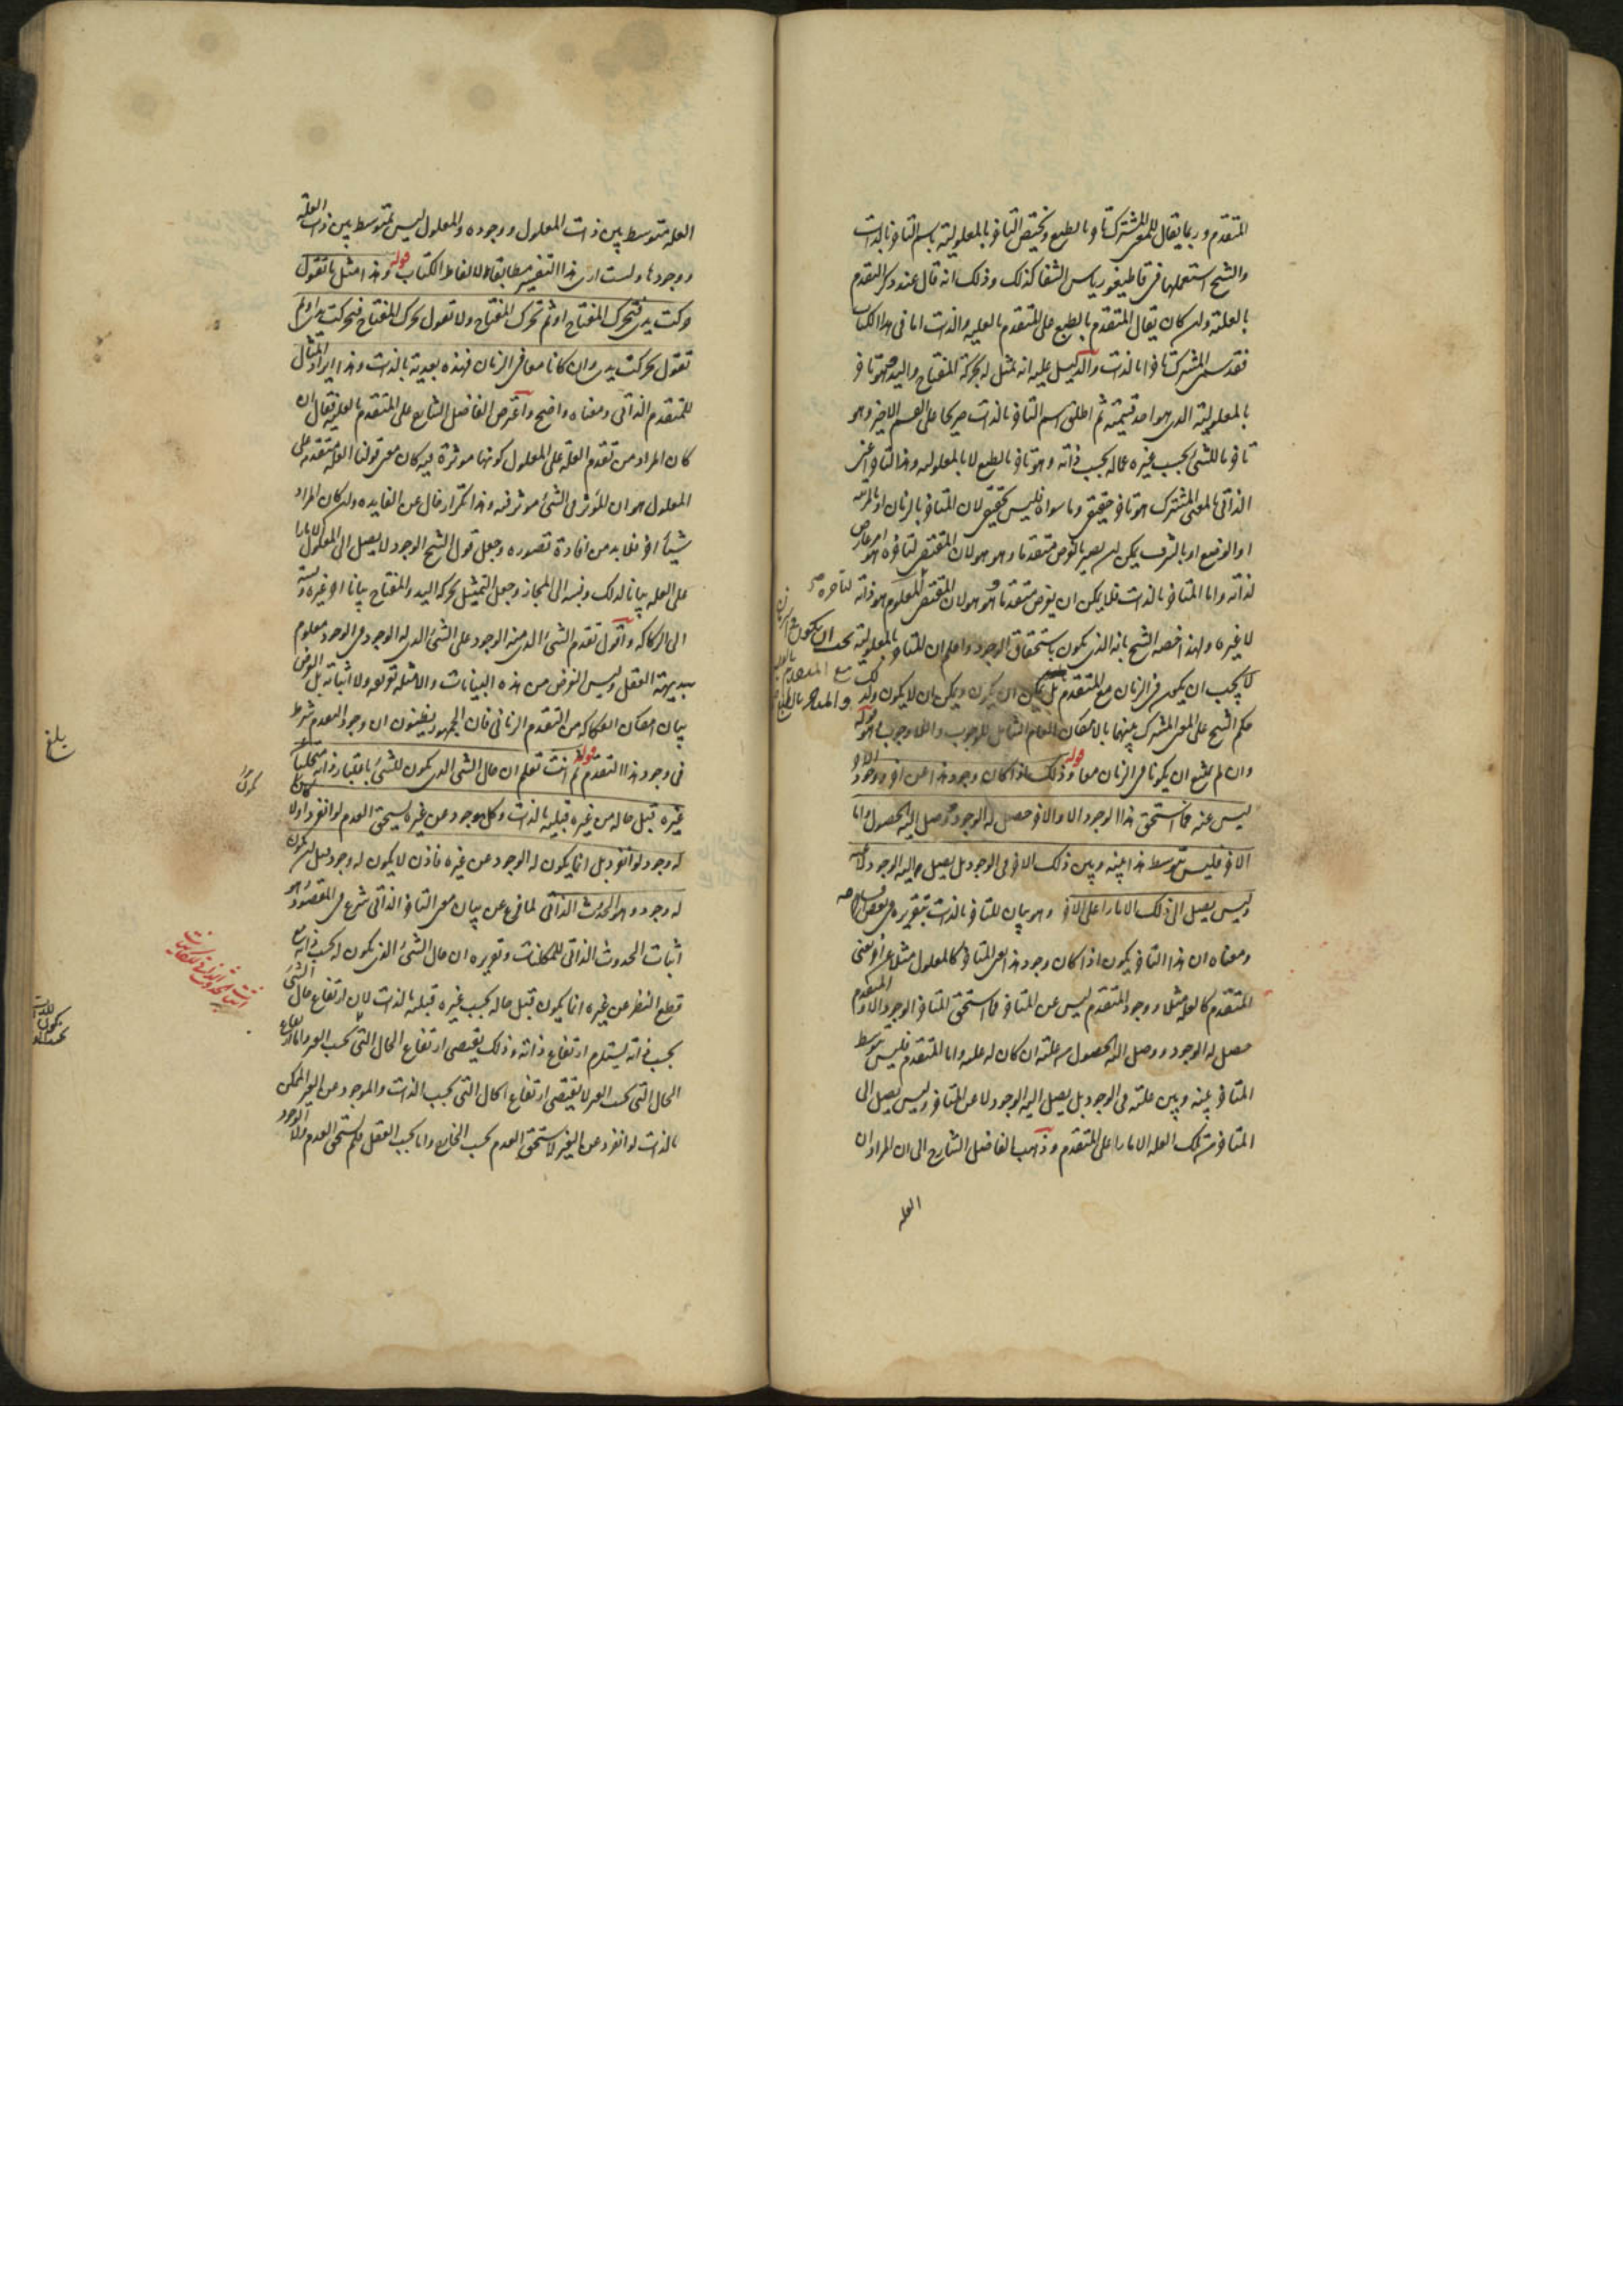 المتقدم وربما يقال للمعنى المشترك تاخر بالطبع ويختص التاخر بالمعلولية باسم التاخر بالذات
والشيخ استعملها فى قاطيغورياس الشفا كذلك وذلك انه قال عند ذكر المتقدم
بالعلية وان كان يقال المتقدم بالطبع على المتقدم بالعلية والذات اما فى هذا الكتاب
فقد سمى المشترك تاخرا بالذات والدليل عليه انه تمثل له بحركة المفتاح واليد وهو تاخر
بالمعلولية الذى هو احد قسميه ثم اطلق اسم التاخر بالذات صريحا على القسم الاخير وهو
تاخر ما للشئ بحسب غيره عما له بحسب ذاته وهو تاخر بالطبع لا بالمعلولية وهذا التاخر اعنى
الذاتى بالمعنى المشترك هو تاخر حقيقى وما سواه فليس بحقيقى لان المتاخر بالزمان او بالمرتبة
او الوضع او بالشرف يمكن ان يصير بالفرض متقدما وهو هو لان المقتضى لتاخره هو امر عارض
لذاته واما المتاخر بالذات فلا يمكن ان يفرض متقدما وهو هو لان المقتضى لتاخره هو ذاته
لا غيره ولهذا خصه الشيخ بانه الذى يكون باستحقاق الوجود واعلم ان المتاخر بالمعلولية يجب ان يكون
مع المتقدم بالعلية
لا يجب ان يكون فى الزمان مع المتقدم بل يمكن ان يكون ويمكن ان لا يكون ولذلك
حكم الشيخ على المعنى المشترك بينهما بالامكان العام الشامل للوجوب واللاوجوب وهو قوله
وان لم يمتنع ان يكونا فى الزمان معا قوله وذلك اذا كان وجود هذا عن اخر ووجود الاخر
ليس عنه فما استحق هذا الوجود الا والاخر حصل له الوجود ووصل اليه الحصول واما
الاخر فليس يتوسط هذا بينه وبين ذلك الاخر فى الوجود بل يصل اليه الوجود لا عنه
وليس يصل الى ذلك الا مارا على الاخر وهو بيان للتاخر بالذات
ومعناه ان هذا التاخر يكون اذا كان وجود هذا اعنى المتاخر كالمعلول مثلا عن اخر يعنى
المتقدم كالعلة مثلا ووجود المتقدم ليس عن المتاخر فما استحق المتاخر الوجود الا والمتقدم
حصل له الوجود ووصل اليه الحصول من علته ان كان له علة واما المتقدم فليس يتوسط
المتاخر بينه وبين علته فى الوجود بل يصل اليه الوجود لا عن المتاخر وليس يصل الى
المتاخر من تلك العلة الا مارا على المتقدم وذهب الفاضل الشارح الى ان المراد ان
العلة
العلة متوسط بين ذات المعلول ووجوده والمعلول ليس بمتوسط بين ذات العلة
ووجودها ولست ارى هذا التفسير مطابقا لالفاظ الكتاب قوله وهذا مثل ما تقول
حركت يدى فتحرك المفتاح او ثم تحرك المفتاح ولا تقول تحرك المفتاح فتحركت يدى او ثم
تقول تحركت يدى وان كانا معا فى الزمان فهذه بعدية بالذات وهذا ايراد المثال
للمتقدم الذاتى ومعناه واضح واعترض الفاضل الشارح على المتقدم بالعلية فقال ان
كان المراد من تقدم العلة على المعلول كونها موثرة فيه كان معنى قولنا العلة متقدمة على
المعلول هو ان المؤثر فى الشئ موثر فيه وهذا تكرار خال عن الفايده وان كان المراد
شيئا اخر فلا بد من افادة تصوره وجعل قول الشيخ الوجود لا يصل الى المعلول الا مارا
على العلة بيانا لذلك ونسبه الى المجاز وجعل التمثيل بحركة اليد والمفتاح بيانا اخر غيره ونسبه
الى الركاكه واقول تقدم الشئ الذى منه الوجود على الشئ الذى له الوجود فى الوجود معلوم
ببديهة العقل وليس الغرض من هذه البيانات والامثلة تعريفه ولا اثباته بل الغرض
بيان امكان انفكاكه من التقدم الزمانى فان الجمهور يظنون ان وجود المتقدم شرط
فى وجود هذا التقدم قوله ثم انت تعلم ان حال الشئ الذى يكون للشئ باعتبار ذاته متخليا عن
غيره قبل حاله من غيره قبلية بالذات وكل موجود عن غيره يستحق العدم لو انفرد او لا يكون
له وجود لو انفرد بل انما يكون له الوجود عن غيره فاذن لا يكون له وجود قبل ان يكون
له وجود وهو الحدوث الذاتى لما فرغ عن بيان معنى التاخر الذاتى شرع فى المقصود وهو
اثبات الحدوث الذاتى للممكنات وتقريره ان حال الشئ الذى يكون له بحسب ذاته مع
قطع النظر عن غيره انما يكون قبل حاله بحسب غيره قبلية بالذات لان ارتفاع حال الشئ
بحسب ذاته يستلزم ارتفاع ذاته وذلك يقتضى ارتفاع الحال التى بحسب الغير واما ارتفاع
الحال التى بحسب الغير لا يقتضى ارتفاع الحال التى بحسب الذات والموجود عن الغير الممكن
بالذات لو انفرد عن الغير لاستحق العدم بحسب الخارج واما بحسب العقل فلم يستحق العدم ولا الوجود
بلغ
يكون